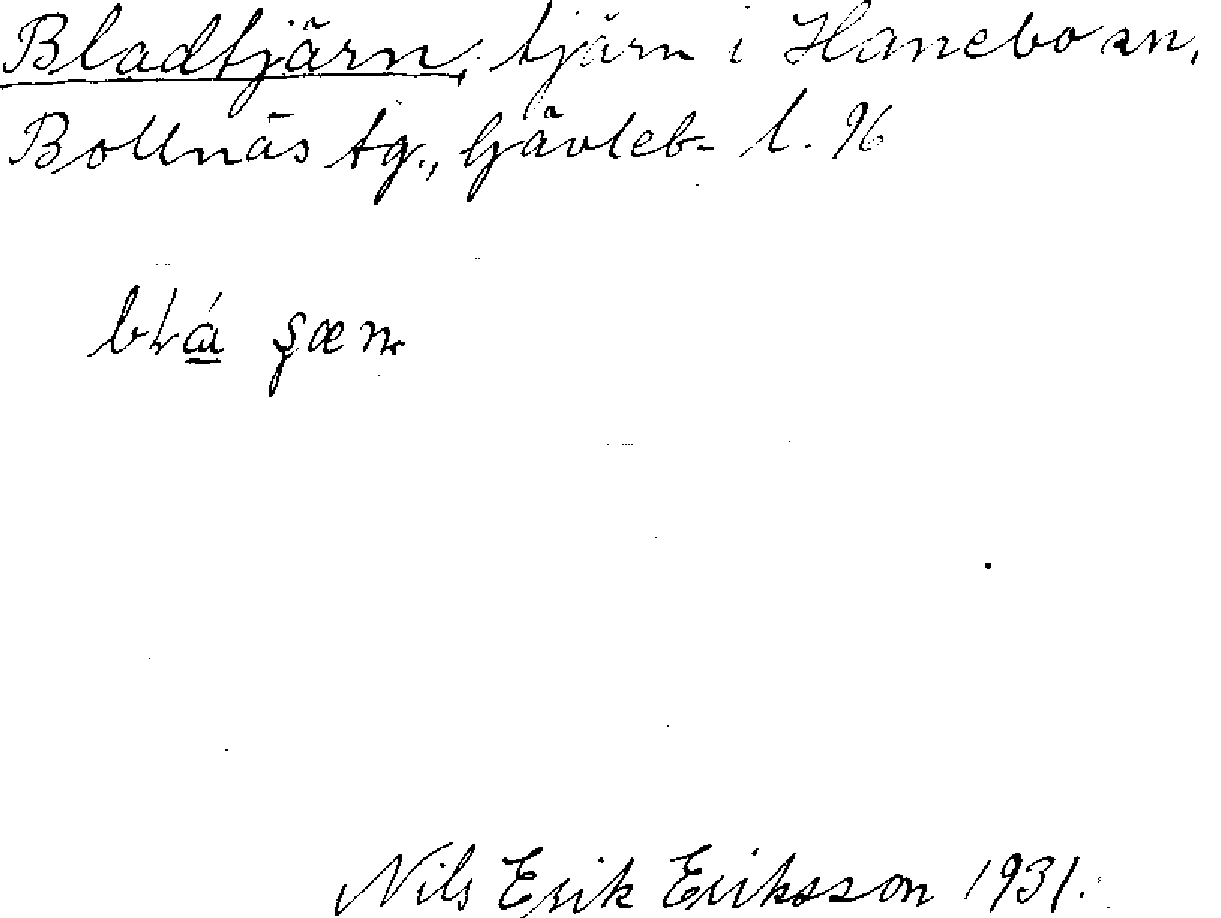 Bladtjärn, tjärn i Hanebo sn,
Bollnäs tg., Gävleb. l. 96
Nils Erik Eriksson 1931.